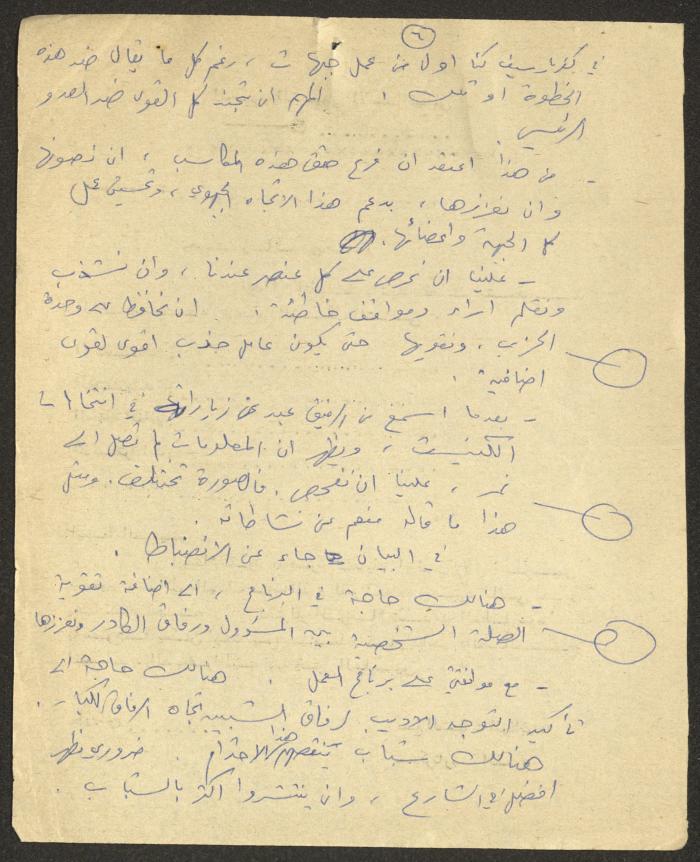 ٦
في كفار سيف كنا اول من عمل جبهات ، رغم كل ما يقال ضد هذه
الخطوة او تلك . المهم ان تجند كل القوى ضد العدو
الرئيسي .
- من هذا اعتقد ان فرع حقق هذه المكاسب ، ان نصونها
وان نعززها ، بدعم هذا الاتجاه الجبهوي ، وتحسين عمل
كل الجبهة واعضائها .
- علينا ان نحرص على كل عنصر عندنا ، وان نشذب
ونقلم اراء ومواقف خاطئة . ان نحافظ على وحدة
الحزب ، ونقويها حتى يكون عامل جذب اقوى لقوى
اضافية .
- بعدما اسمع من الرفيق عبد عن زياراته في انتخابات
الكنيست ، ويظهر ان المعلومات لم تصل الى
نمر ، علينا ان نفحص . فالصورة تختلف . ومثل
هذا ما قاله منعم عن نشاطاته .
في البيان جاء عن الانضباط .
- هنالك حاجة في البرنامج ، الى اضافة تقوية
الصلة الشخصية بين المسؤول ورفاق الكادر وتعزيزها
- مع موافقتي على برنامج العمل . هنالك حاجة الى
تأكيد التوجه الادبي لرفاق الشبيبة تجاه الرفاق الكبار .
هنالك شباب ينقصهم هذا الاحترام . ضروري نظهر
افضل في الشارع ، وان ينتشروا اكثر بالشباب .